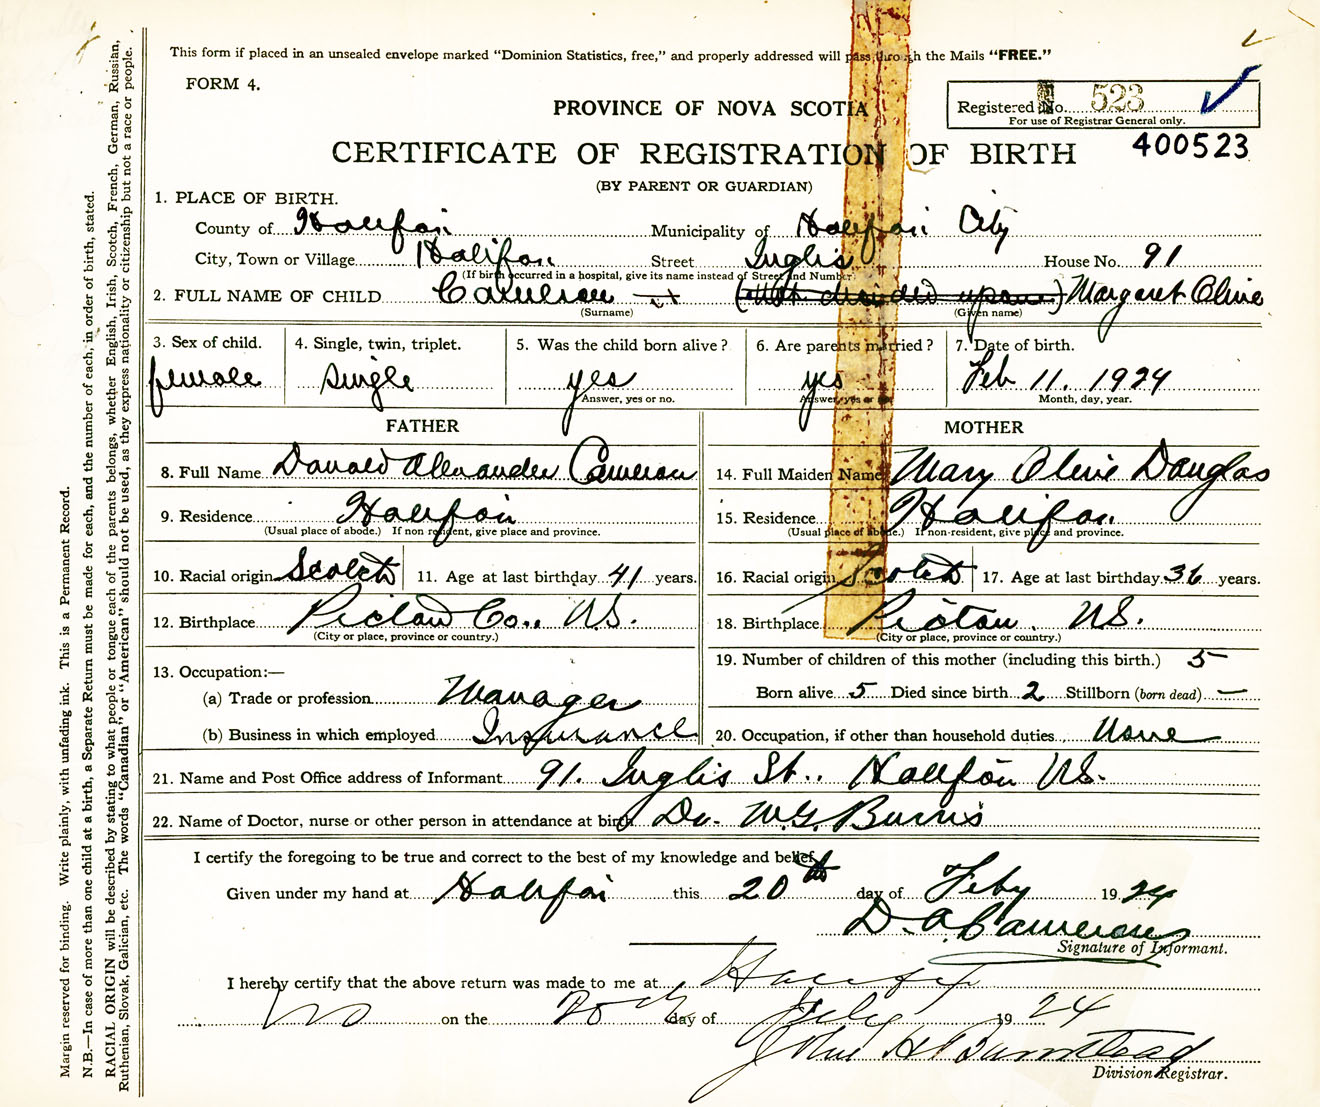 This form if placed in an unsealed envelope marked "Dominion Statistics, free," and properly addressed will pass through the Mails "FREE."
FORM 4.
PROVINCE OF NOVA SCOTIA
Registered No. 523
For use of Registrar General only.
400523
CERTIFICATE OF REGISTRATION OF BIRTH
(BY PARENT OR GUARDIAN)
1. PLACE OF BIRTH.
County of Halifax Municipality of Halifax City
City, Town or Village Halifax Street Inglis House No. 91
(If birth occurred in a hospital, give its name instead of Street and Number)
2. FULL NAME OF CHILD Cameron (Not decided upon) Margaret Olive
(Surname) (Given name)
3. Sex of child. 4. Single, twin, triplet. 5. Was the child born alive? 6. Are parents married? 7. Date of birth.
female single yes yes Feb 11. 1924
Answer, yes or no. Answer, yes or no. Month, day, year.
FATHER MOTHER
8. Full Name Donald Alexander Cameron 14. Full Maiden Name Mary Olive Douglas
9. Residence Halifax 15. Residence Halifax
(Usual place of abode.) If non resident, give place and province. (Usual place of abode.) If non-resident, give place and province.
10. Racial origin Scotch 11. Age at last birthday 41 years. 16. Racial origin Scotch 17. Age at last birthday 36 years.
12. Birthplace Pictou Co., N.S. 18. Birthplace Pictou N.S.
(City or place, province or country.) (City or place, province or country.)
13. Occupation:— 19. Number of children of this mother (including this birth.) 5
(a) Trade or profession Manager Born alive 5 Died since birth 2 Stillborn (born dead) —
(b) Business in which employed Insurance 20. Occupation, if other than household duties None
21. Name and Post Office address of Informant 91. Inglis St., Halifax N.S.
22. Name of Doctor, nurse or other person in attendance at birth Dr. W.G. Burris
I certify the foregoing to be true and correct to the best of my knowledge and belief.
Given under my hand at Halifax this 20th day of Feby 1924
D. A. Cameron
Signature of Informant.
I hereby certify that the above return was made to me at Halifax
NS on the 20th day of Feby 1924
John H Barnstead
Division Registrar.
Margin reserved for binding. Write plainly, with unfading ink. This is a Permanent Record.
N.B.—In case of more than one child at a birth, a Separate Return must be made for each, and the number of each, in order of birth, stated.
RACIAL ORIGIN will be described by stating to what people or tongue each of the parents belongs, whether English, Irish, Scotch, French, German, Russian,
Ruthenian, Slovak, Galician, etc. The words "Canadian" or "American" should not be used, as they express nationality or citizenship but not a race or people.